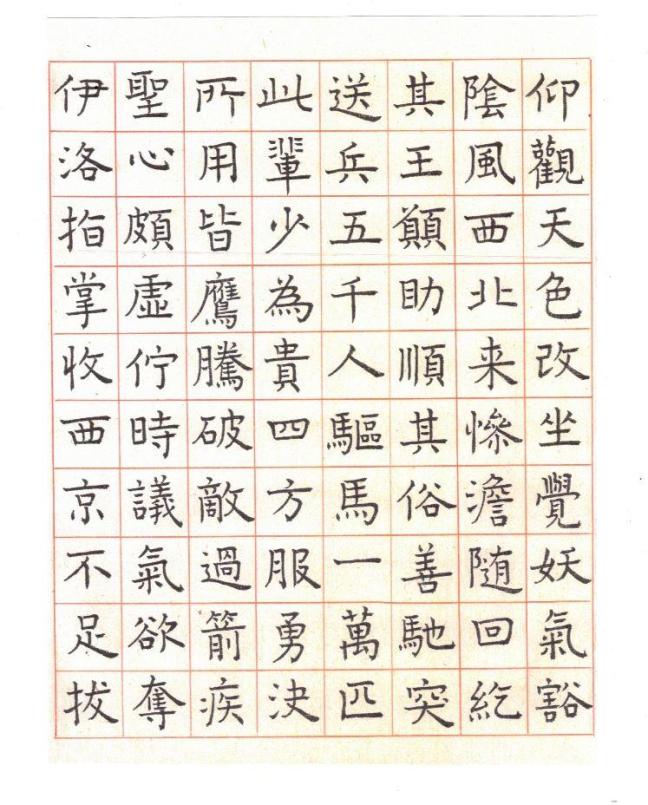 仰觀天色改坐覺妖氣豁
陰風西北来慘澹随回紇
其王願助順其俗善馳突
送兵五千人驅馬一萬匹
此輩少為貴四方服勇決
所用皆鷹騰破敵過箭疾
聖心頗虛佇時議氣欲奪
伊洛指掌收西京不足拔